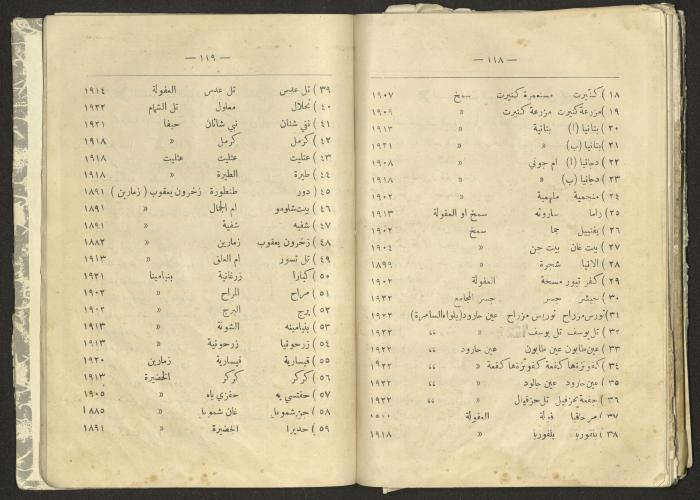 — ١١٨ —
١٨ ) كنيرت مستعمرة كنيرت سمخ ١٩٠٧
١٩ ) مزرعة كنيرت مزرعة كنيرت » ١٩٠٩
٢٠ ) بتانيا (ا) بتانية » ١٩١٣
٢١ ) بتانيا (ب) » » ١٩٢١
٢٢ ) دجانيا (ا) ام جوني » ١٩٠٨
٢٣ ) دجانيا (ب) » » ١٩١٨
٢٤ ) منحمية ملحمية » ١٩٠٢
٢٥ ) راما سارونه سمخ او العفولة ١٩١٣
٢٦ ) يفنييل يما سمخ ١٩٠٢
٢٧ ) بيت غان بيت جن » ١٩٠٤
٢٨ ) الانيا شجرة » ١٨٩٩
٢٩ ) كفر تبور مسحة العفولة ١٩٠٢
٣٠ ) جيشر جسر جسر المجامع ١٩٢٢
٣١ ) نورس مزراح نوريس مزراح عين حارود (بلواء السامرة) ١٩٢٣
٣٢ ) تل يوسف تل يوسف » » ١٩٢٢
٣٣ ) عين طابون عين طابون عين حارود » ١٩٢٢
٣٤ ) » » ١٩٢٢
٣٥ ) عين حارود عين جالود » » ١٩٢٢
٣٦ ) جفعة يحزقيل تل حزقيال » » ١٩٢٢
٣٧ ) مرحافيا فولة العفولة
٣٨ ) بلفوريا بلفوريا » ١٩١٨
— ١١٩ —
٣٩ ) تل عدس تل عدس العفولة ١٩١٤
٤٠ ) نحلال معلول تل الشمام ١٩٢٢
٤١ ) نفي شنان نبي شانان حيفا ١٩٢١
٤٢ ) كرمل كرمل » ١٩١٨
٤٣ ) عتليت عتليت عتليت ١٩١٨
٤٤ ) طيرة الطيرة » ١٩١٨
٤٥ ) دور طنطورة زخرون يعقوب ( زمارين ) ١٨٩١
٤٦ ) بيت شلومو ام الجمال » ١٨٩١
٤٧ ) شفيه شفية » ١٨٩١
٤٨ ) زخرون يعقوب زمارين » ١٨٨٢
٤٩ ) تل تسور ام العلق » ١٩١٣
٥٠ ) كبارا زرغانية بنيامينا ١٩٢١
٥١ ) مراح المراح » ١٩٠٣
٥٢ ) برج البرج » ١٩٠٣
٥٣ ) بنيامينه الشونة » ١٩١٣
٥٤ ) زرحونيا زرحونية » ١٩١٣
٥٥ ) قيسارية قيسارية زمارين ١٩٢٠
٥٦ ) كركر كركر الخضيرة ١٩١٣
٥٧ ) حفتسي يه حفزي ياه » ١٩٠٥
٥٨ ) غان شموئيل » ١٨٨٥
٥٩ ) حديرا الخضيرة » ١٨٩١